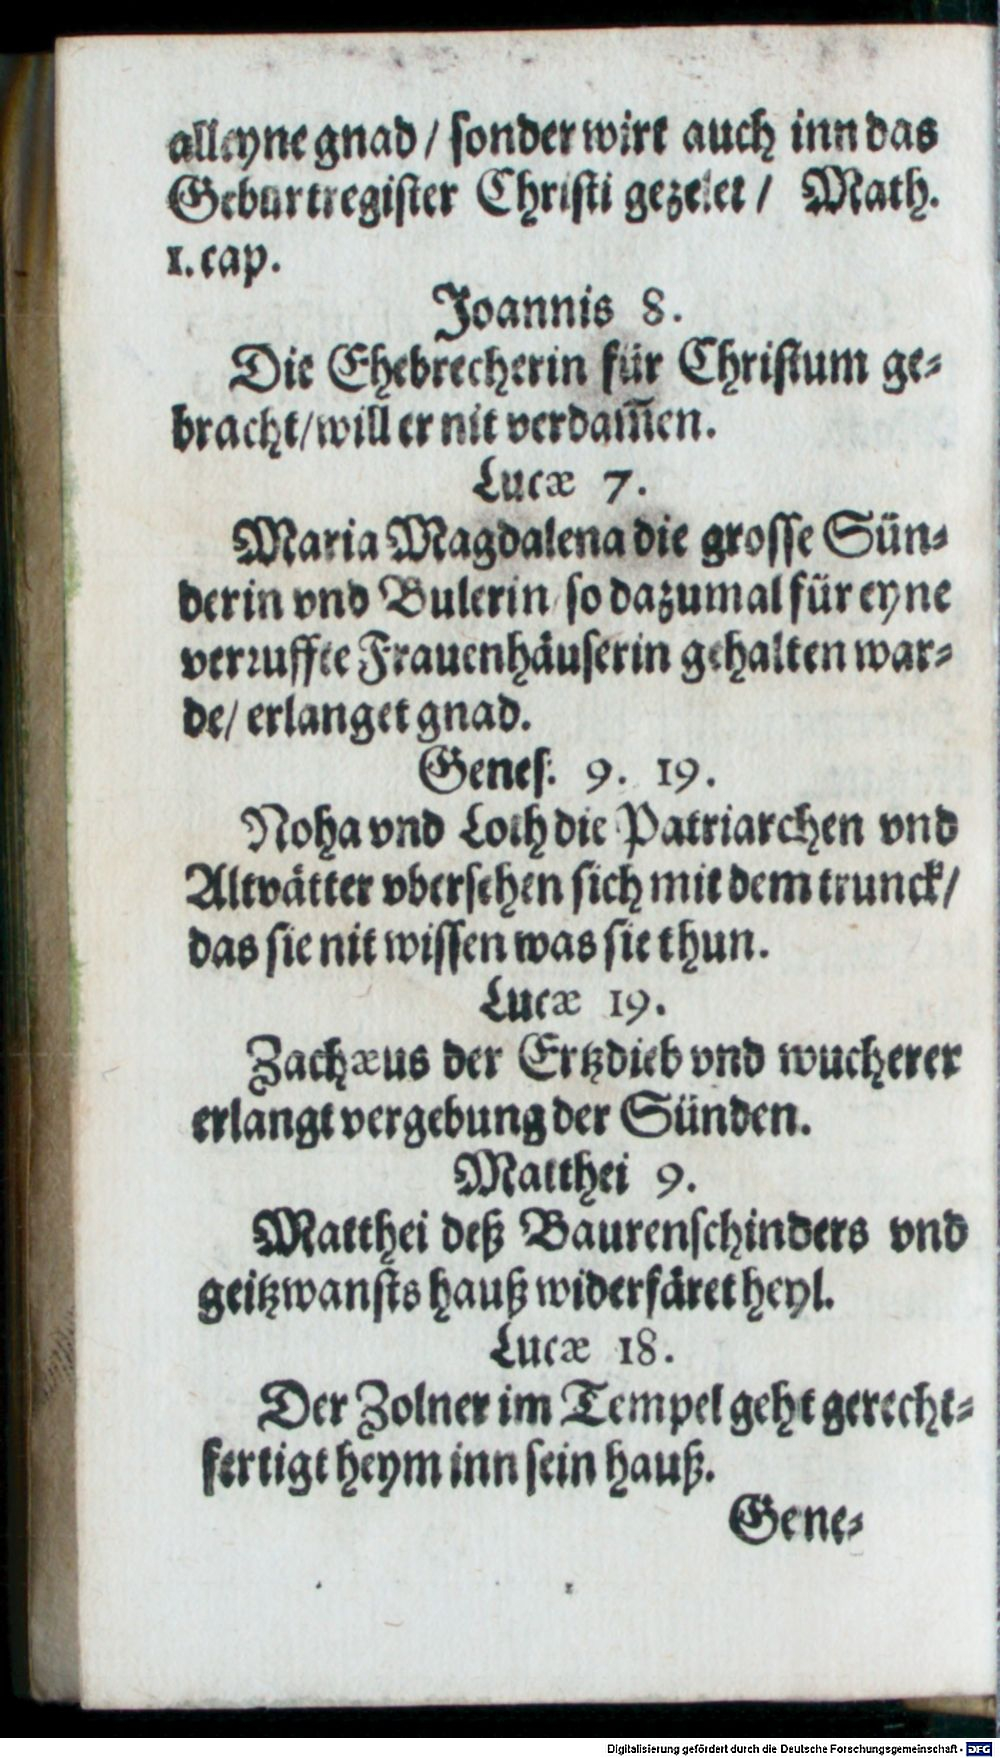 alleyne gnad / sonder wirt auch inn das
Geburtregister Christi gezelet / Math.
1. cap.
Joannis 8.
Die Ehebrecherin für Christum ge-
bracht / will er nit verdam̅en.
Lucæ 7.
Maria Magdalena die grosse Sün-
derin vnd Bulerin so dazumal für eyne
verruffte Frauenhäuserin gehalten war-
de / erlanget gnad.
Genes. 9. 19.
Noha vnd Loth die Patriarchen vnd
Altvätter vbersehen sich mit dem trunck /
das sie nit wissen was sie thun.
Lucæ 19.
Zachæus der Ertzdieb vnd wucherer
erlangt vergebung der Sünden.
Matthei 9.
Matthei deß Baurenschinders vnd
geitzwansts hauß widerfäret heyl.
Lucæ 18.
Der Zolner im Tempel geht gerecht-
fertigt heym inn sein hauß.
Gene-
Digitalisierung gefördert durch die Deutsche Forschungsgemeinschaft - DFG